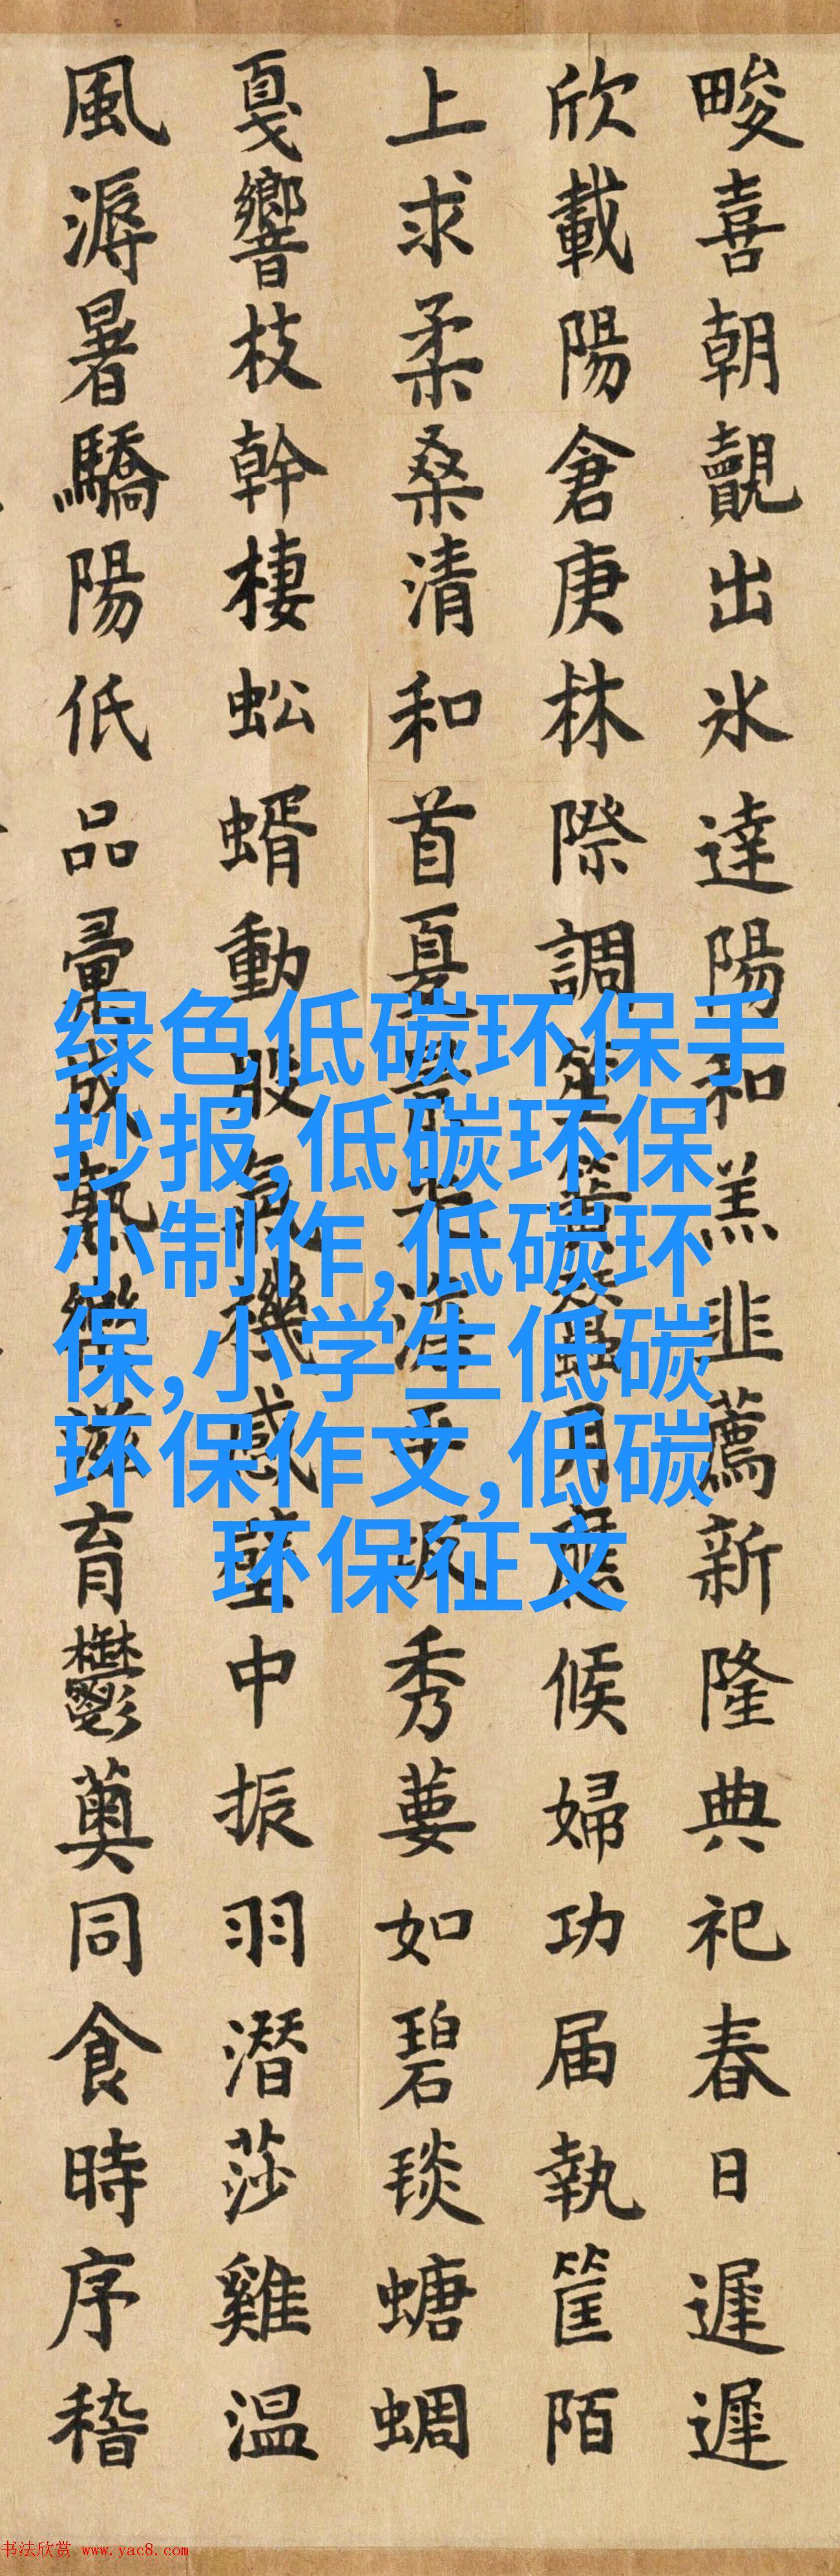 畯喜朝覿出氷達陽和羔韭薦新隆典祀春日遲遲
欣載陽倉庚林際調月應候婦功届執筐陌
上求柔桑清和首夏秀葽如碧琰螗蜩
戛響枝幹棲蚣蝑動股機感蟄中振羽潛莎雞温
風溽暑驕陽低品彙成熟滋育鬱薁同食時序稽
绿色低碳环保手
抄报,低碳环保
小制作,低碳环
保,小学生低碳
环保作文,低碳
环保征文
书法欣赏 www.yac8.com